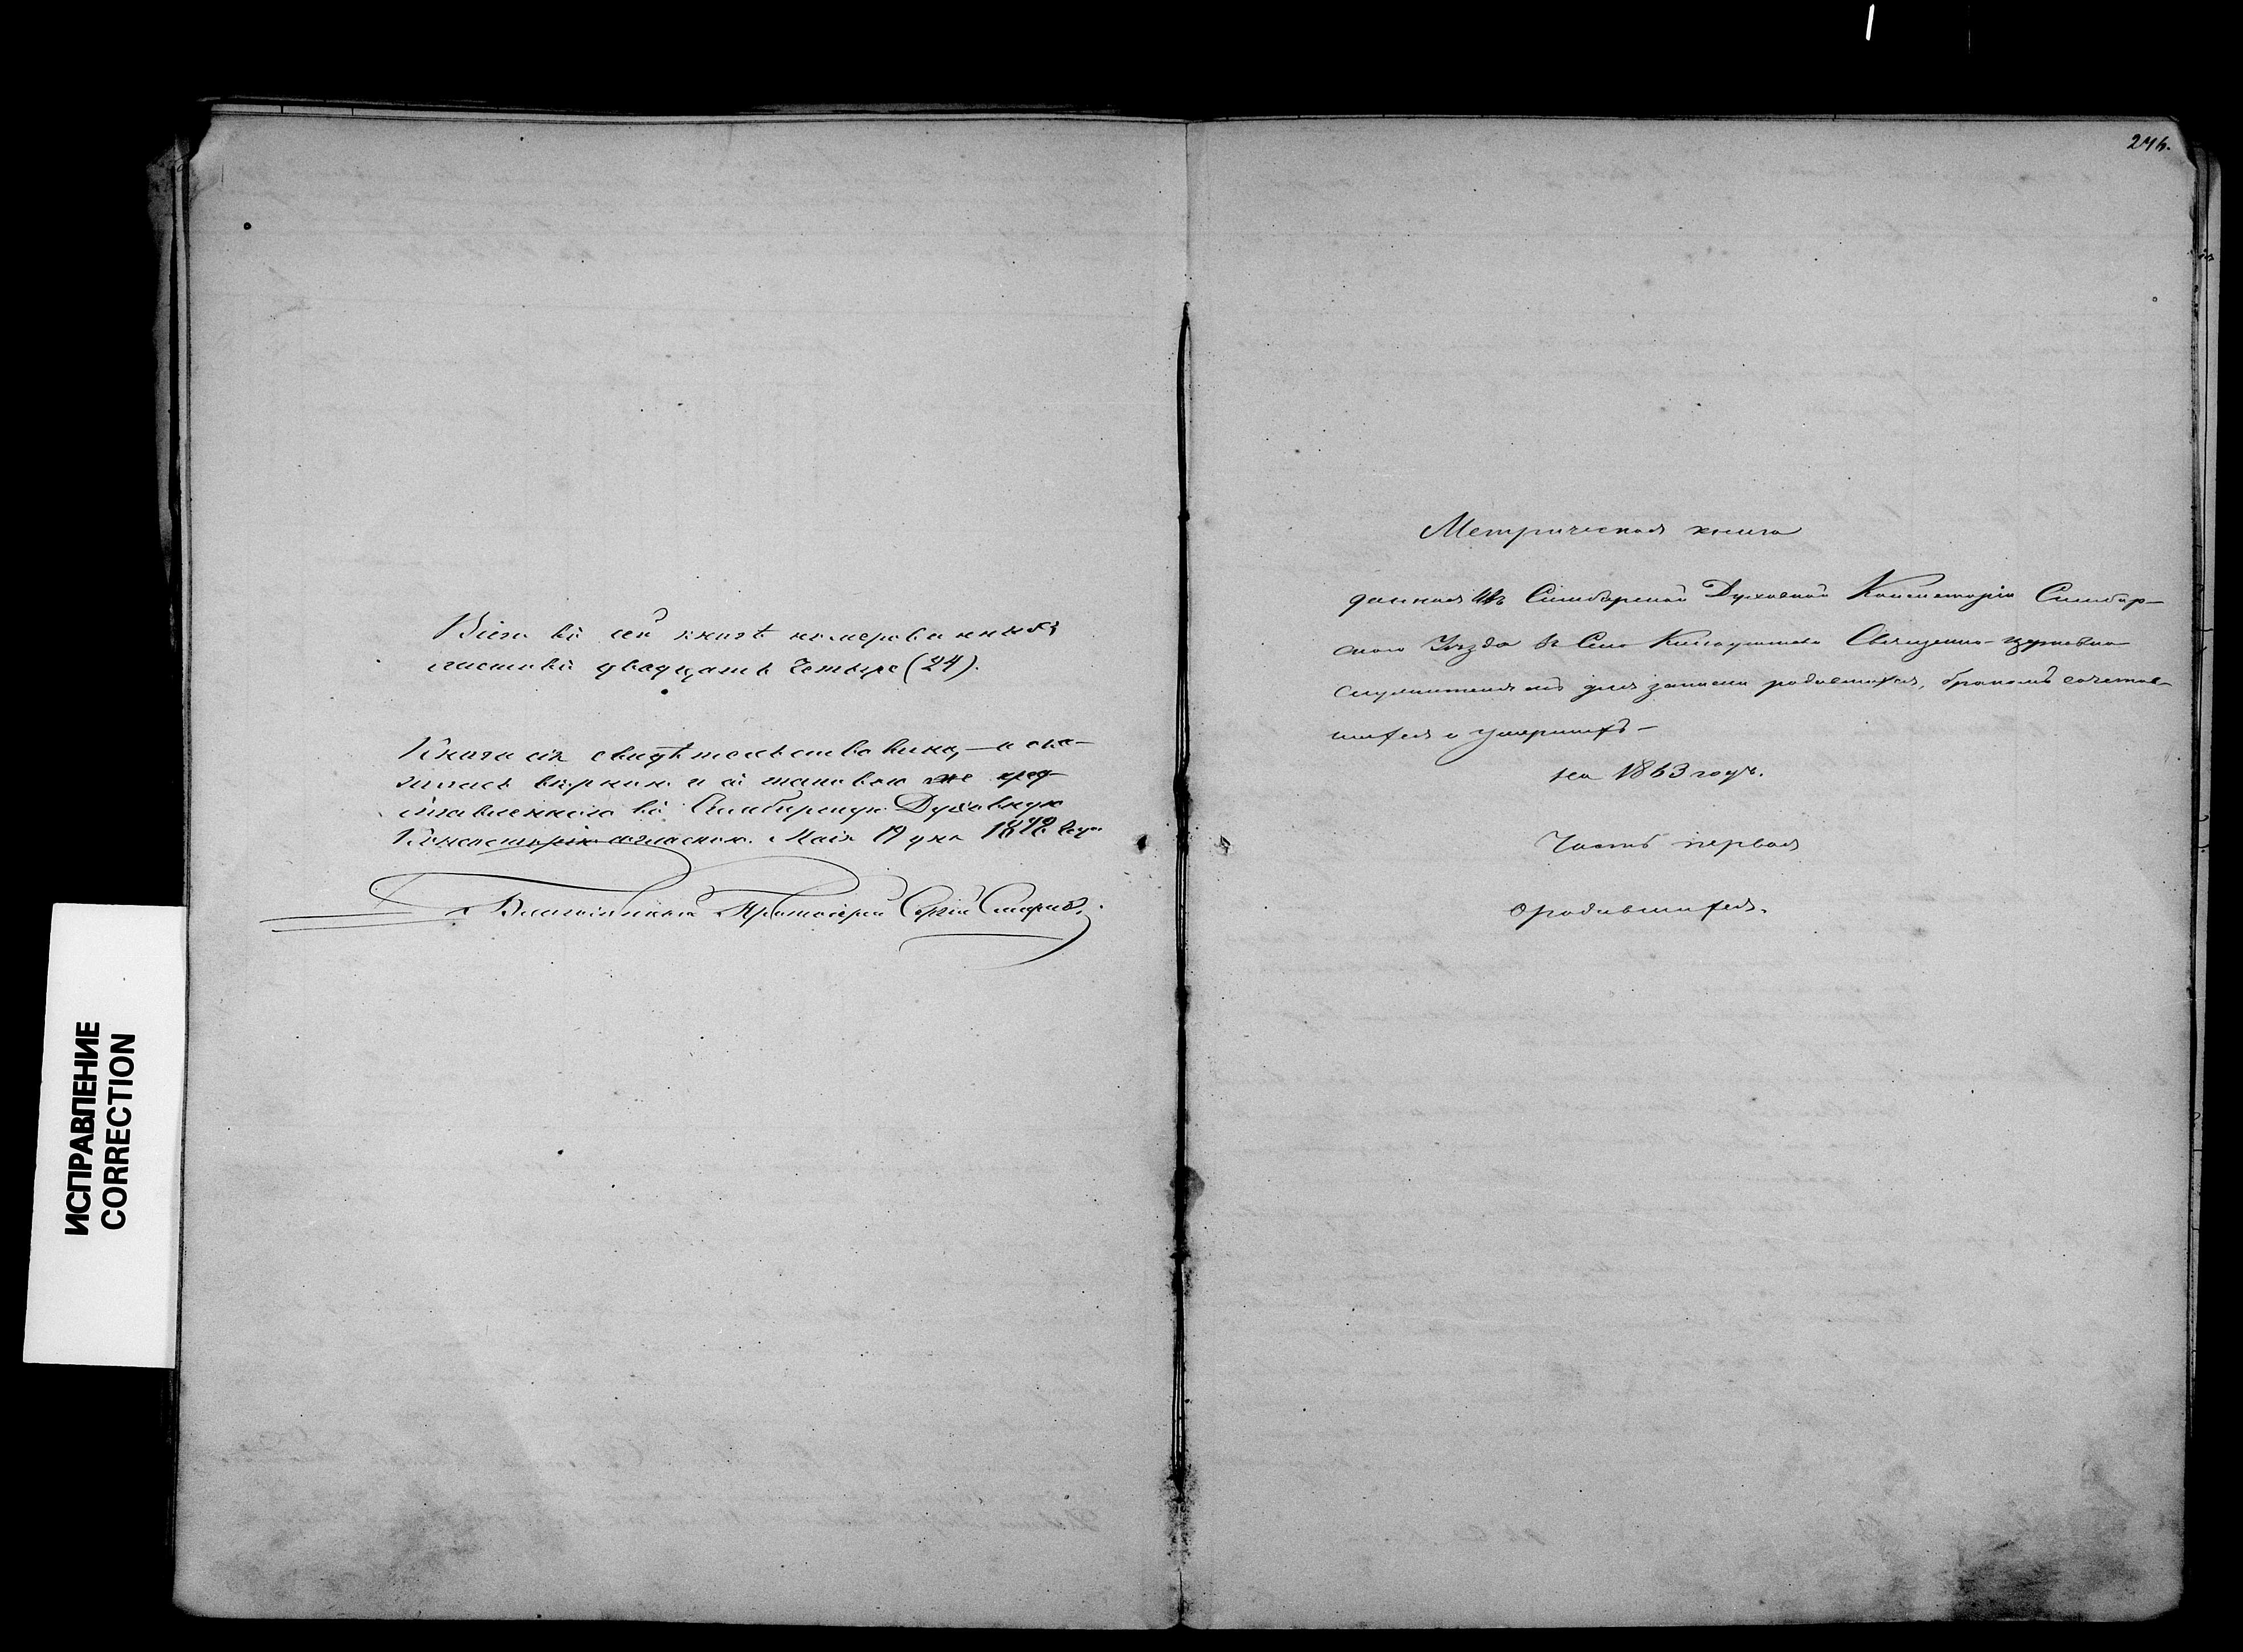 Всего въ сей книгѣ нумерованныхъ
листовъ двадцать четыре (24).
Книга сія свидѣтельствована, и ока-
залась вѣрною и съ таковою же пред-
ставленною въ Симбирскую Духовную
Консисторію согласною. Маія 19 дня годъ
Благочинный Протоіерей Сергій
246.
Метрическая книга
данная изъ Симбирской Духовной Консисторіи Симбир-
скаго Уѣзда въ Село Священно-церковно
служителямъ для записки родившихся, бракомъ сочетав-
шихся и умершихъ –
на 1863 годъ.
Часть первая
о родившихся.
ИСПРАВЛЕНИЕ
CORRECTION